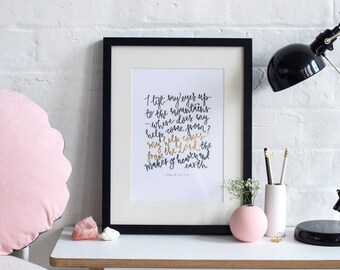 I lift my eyes up
to the mountains
- where does my
help come from?
my help comes
from the Lord, the
maker of heaven and
earth